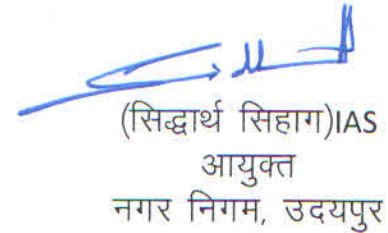 (सिद्धार्थ सिहाग)IAS
आयुक्त
नगर निगम, उदयपुर